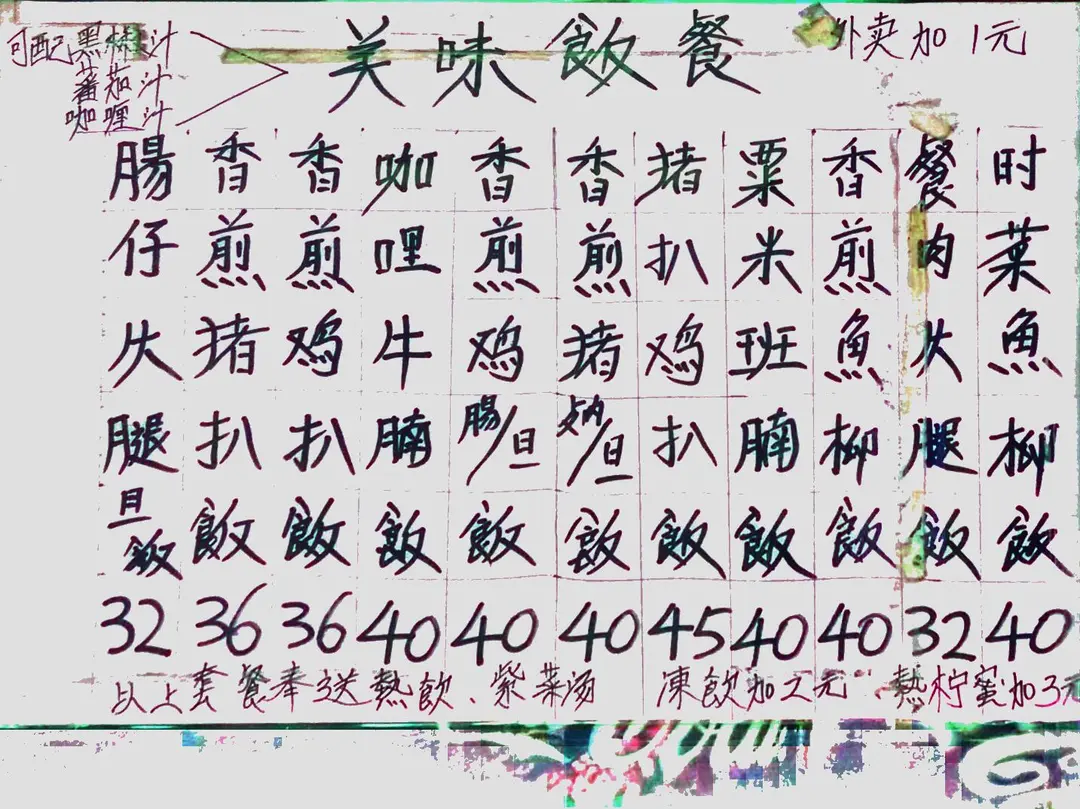 可配黑椒汁
蕃茄汁
咖喱汁
美味飯餐
外卖加1元
腸仔火腿旦飯 32
香煎猪扒飯 36
香煎鸡扒飯 36
咖哩牛腩飯 40
香煎鸡腸/旦飯 40
香煎猪/旦飯 40
猪扒鸡扒飯 45
粟米班腩飯 40
香煎魚柳飯 40
餐肉火腿飯 32
时菜魚柳飯 40
以上套餐奉送熱飲、紫菜汤 凍飲加2元 熱柠蜜加3元